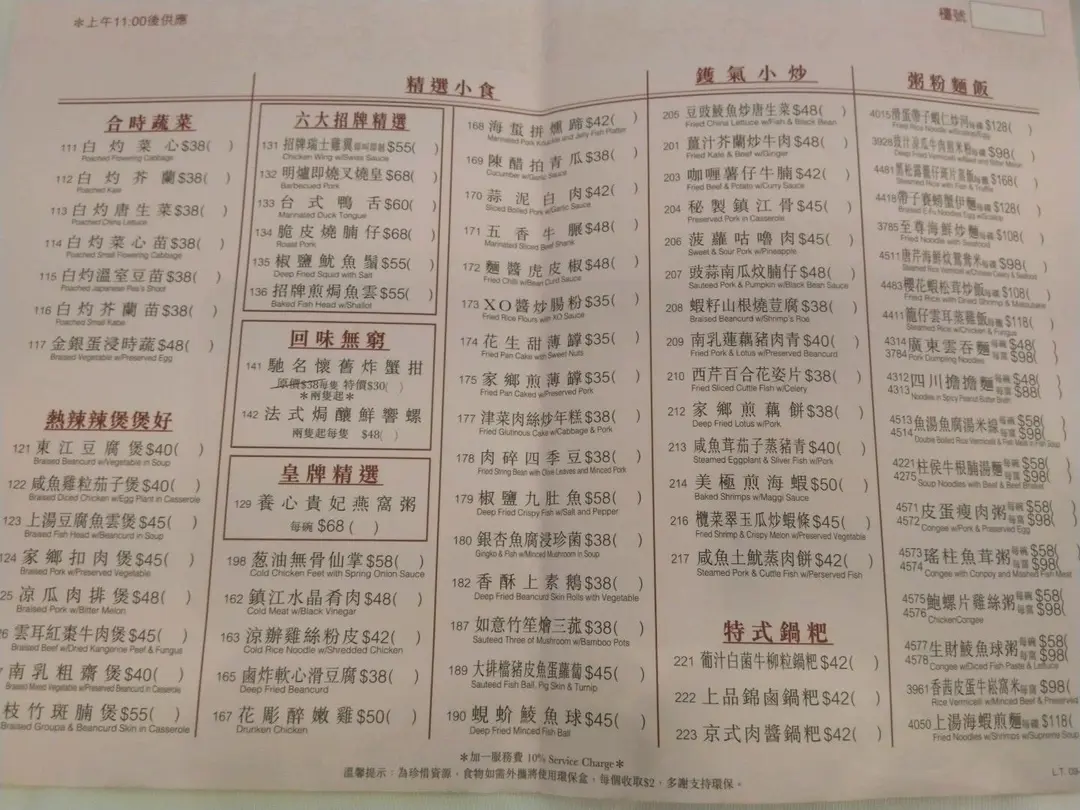 ＊上午11:00後供應
櫃號
合時蔬菜
111 白灼菜心$38( )
Poached Flowering Cabbage
112 白灼芥蘭$38( )
Poached Kale
113 白灼唐生菜$38( )
Poached China Lettuce
114 白灼菜心苗$38( )
Poached Small Flowering Cabbage
115 白灼溫室豆苗$38( )
Poached Japanese Pea's Shoot
116 白灼芥蘭苗$38( )
Poached Small Kable
117 金銀蛋浸時蔬$48( )
Braised Vegetable w/Preserved Egg
熱辣辣煲煲好
121 東江豆腐煲$40( )
Braised Beancurd w/Vegetable in Soup
122 咸魚雞粒茄子煲$40( )
Braised Diced Chicken w/Egg Plant in Casserole
123 上湯豆腐魚雲煲$45( )
Braised Fish Head w/Beancurd in Soup
124 家鄉扣肉煲$45( )
Braised Pork w/Preserved Vegetable
25 涼瓜肉排煲$48( )
Braised Pork w/Bitter Melon
26 雲耳紅棗牛肉煲$45( )
Braised Beef w/Dried Kangenoe Peef & Fungus
南乳粗齋煲$40( )
Braised Mixed Vegetable w/Preserved Beancurd in Casserole
枝竹斑腩煲$55( )
Braised Groupa & Beancurd Skin in Casserole
精選小食
六大招牌精選
131 招牌瑞士雞翼即叫即做$55( )
Chicken Wing w/Swiss Sauce
132 明爐即燒叉燒皇$68( )
Barbecued Pork
133 台式鴨舌$60( )
Marinated Duck Tongue
134 脆皮燒腩仔$68( )
Roast Pork
135 椒鹽魷魚鬚$55( )
Deep Fried Squid with Salt
136 招牌煎焗魚雲$55( )
Baked Fish Head w/Shallot
回味無窮
141 馳名懷舊炸蟹拑
原價$38每隻 特價$30( )
＊兩隻起＊
142 法式焗釀鮮響螺
兩隻起每隻 $48( )
皇牌精選
129 養心貴妃燕窩粥
每碗$68 ( )
198 葱油無骨仙掌$58( )
Cold Chicken Feet with Spring Onion Sauce
162 鎮江水晶肴肉$48( )
Cold Meat w/Black Vinegar
163 涼辦雞絲粉皮$42( )
Cold Rice Noodle w/Shredded Chicken
165 鹵炸軟心滑豆腐$38( )
Deep Fried Beancurd
167 花彫醉嫩雞$50( )
Drunken Chicken
168 海蜇拼燻蹄$42( )
Marinated Pork Knuckle and Jelly Fish Platter
169 陳醋拍青瓜$38( )
Cucumber w/Garlic Sauce
170 蒜泥白肉$42( )
Sliced Boiled Pork w/Garlic Sauce
171 五香牛𦟌$48( )
Marinated Sliced Beef Shank
172 麵醬虎皮椒$48( )
Fried Chilli w/Bean Curd Sauce
173 XO醬炒腸粉$35( )
Fried Rice Flours with XO Sauce
174 花生甜薄罉$35( )
Fried Pan Cake with Sweet Nuts
175 家鄉煎薄罉$35( )
Fried Pan Caked w/Preserved Pork
177 津菜肉絲炒年糕$38( )
Fried Glutinous Cake w/Cabbage & Pork
178 肉碎四季豆$38( )
Fried String Bean with Olive Leaves and Minced Pork
179 椒鹽九肚魚$58( )
Deep Fried Crispy Fish w/Salt and Pepper
180 銀杏魚腐浸珍菌$38( )
Gingko & Fish w/Minced Mushroom in Soup
182 香酥上素鵝$38( )
Deep Fried Beancurd Skin Rolls with Vegetable
187 如意竹笙燴三菰$38( )
Sauteed Three of Mushroom w/Bamboo Pots
189 大排檔豬皮魚蛋蘿蔔$45( )
Sauteed Fish Ball, Pig Skin & Turnip
190 蜆蚧鯪魚球$45( )
Deep Fried Minced Fish Ball
鑊氣小炒
205 豆豉鯪魚炒唐生菜$48( )
Fried China Lettuce w/Fish & Black Bean
201 薑汁芥蘭炒牛肉$48( )
Fried Kale & Beef w/Ginger
203 咖喱薯仔牛腩$42( )
Fried Beef & Potato w/Curry Sauce
204 秘製鎮江骨$45( )
Preserved Pork in Casserole
206 菠蘿咕嚕肉$45( )
Sweet & Sour Pork w/Pineapple
207 豉蒜南瓜炆腩仔$48( )
Sauteed Pork & Pumpkin w/Black Bean Sauce
208 蝦籽山根燒荳腐$38( )
Braised Beancurd w/Shrimp's Roe
209 南乳蓮藕豬肉青$40( )
Fried Pork & Lotus w/Preserved Beancurd
210 西芹百合花姿片$38( )
Fried Sliced Cuttle Fish w/Celery
212 家鄉煎藕餅$38( )
Deep Fried Lotus w/Pork
213 咸魚茸茄子蒸豬青$40( )
Steamed Eggplant & Silver Fish w/Pork
214 美極煎海蝦$50( )
Baked Shrimps w/Maggi Sauce
216 欖菜翠玉瓜炒蝦條$45( )
Fried Shrimp & Crispy Melon w/Preserved Vegetable
217 咸魚土魷蒸肉餅$42( )
Steamed Pork & Cuttle Fish w/Perserved Fish
特式鍋粑
221 葡汁白菌牛柳粒鍋粑$42( )
222 上品錦鹵鍋粑$42( )
223 京式肉醬鍋粑$42( )
粥粉麵飯
4015 滑蛋帶子蝦仁炒河每碟$128( )
Fried Rice Noodle w/Scallop/Egg
3928 豉汁涼瓜牛肉煎米粉每碟$98( )
4481 黑松露龍仔斑片蒸飯每碟$168( )
Steamed Rice with Fish & Truffle
4418 帶子賽螃蟹伊麵每碟$128( )
Braised E-Fu Noodles Egg w/Scallop
3785 至尊海鮮炒麵每碟$108( )
Fried Noodle with Seafood
4511 唐芹海鮮炆鴛鴦米每碟$98( )
4483 櫻花蝦松茸炒飯每碟$108( )
Fried Rice with Dried Shrimp & Matsutake
4411 籠仔雲耳蒸雞飯每碟$118( )
Steamed Rice w/Chicken & Fungus
4314 廣東雲吞麵 每碗$48( )
3784 每窩$98( )
Pork Dumpling Noodles
4312 四川擔擔麵 每碗$48( )
4313 每窩$88( )
Noodles in Spicy Peanut Butter Broth
4513 魚湯魚腐湯米線 每碗$58( )
4514 每窩$98( )
Double Boiled Rice Vermicelli & Fish Meat in Fish Soup
4221 柱侯牛根腩湯麵 每碗$58( )
4275 每窩$98( )
Soup Noodles with Beef & Beef Brisket
4571 皮蛋瘦肉粥 每碗$58( )
4572 每窩$98( )
Congee w/Pork & Preserved Egg
4573 瑤柱魚茸粥 每碗$58( )
4574 每窩$98( )
Congee with Conpoy and Mashed Fish Meat
4575 鮑螺片雞絲粥 每碗$58( )
4576 每窩$98( )
ChickenCongee
4577 生財鯪魚球粥 每碗$58( )
4578 每窩$98( )
Congee w/Diced Fish Paste & Lettuce
3961 香茜皮蛋牛崧窩米每窩$98( )
Rice Vermicelli w/Minced Beef & Preserved
4050 上湯海蝦煎麵每碟$118( )
Fried Noodles w/Shrimps w/Supreme Soup
＊加一服務費 10% Service Charge＊
溫馨提示：為珍惜資源，食物如需外攜將使用環保盒，每個收取$2，多謝支持環保。